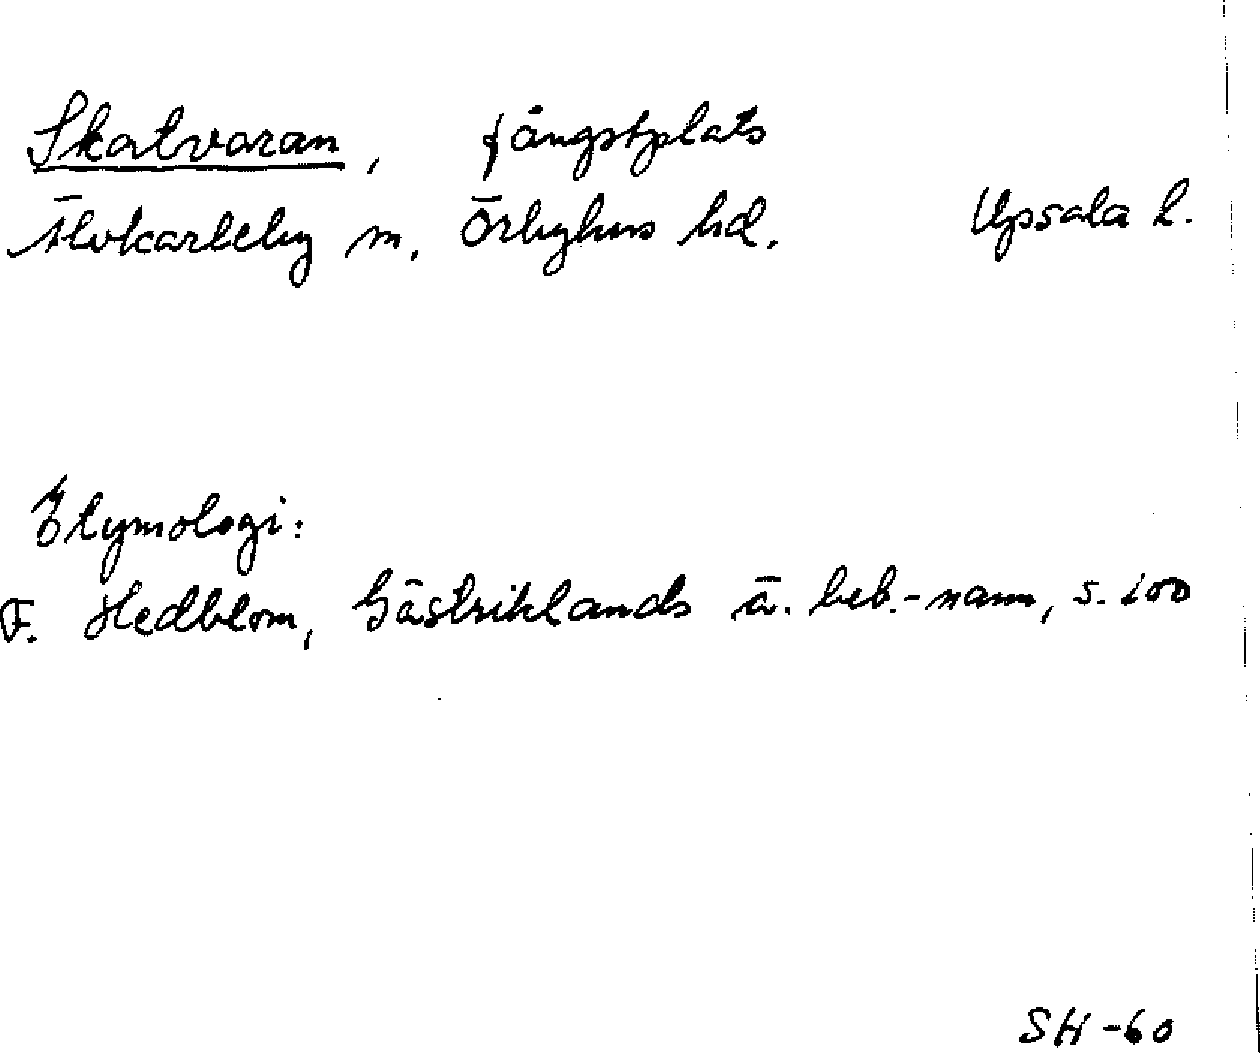 Skatvaran, fångstplats
Älvkarleby sn, Örbyhus hd. Upsala l.
Etymologi:
F. Hedblom, Gästriklands ä. beb.-namn, s. 100
SH-60